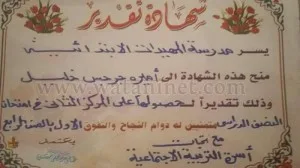 شهادة تقدير
يسر مدرسة المعيدات الابتدائية
منح هذه الشهادة الى أميرة جرجس خليل
وذلك تقديراً لحصولها على المركز الثانى فى امتحان
النصف الدراسى الأول بالصف الرابع
متمنين له دوام النجاح والتفوق
مع تحيات
أسرة التربية الاجتماعية
www.wataninet.com